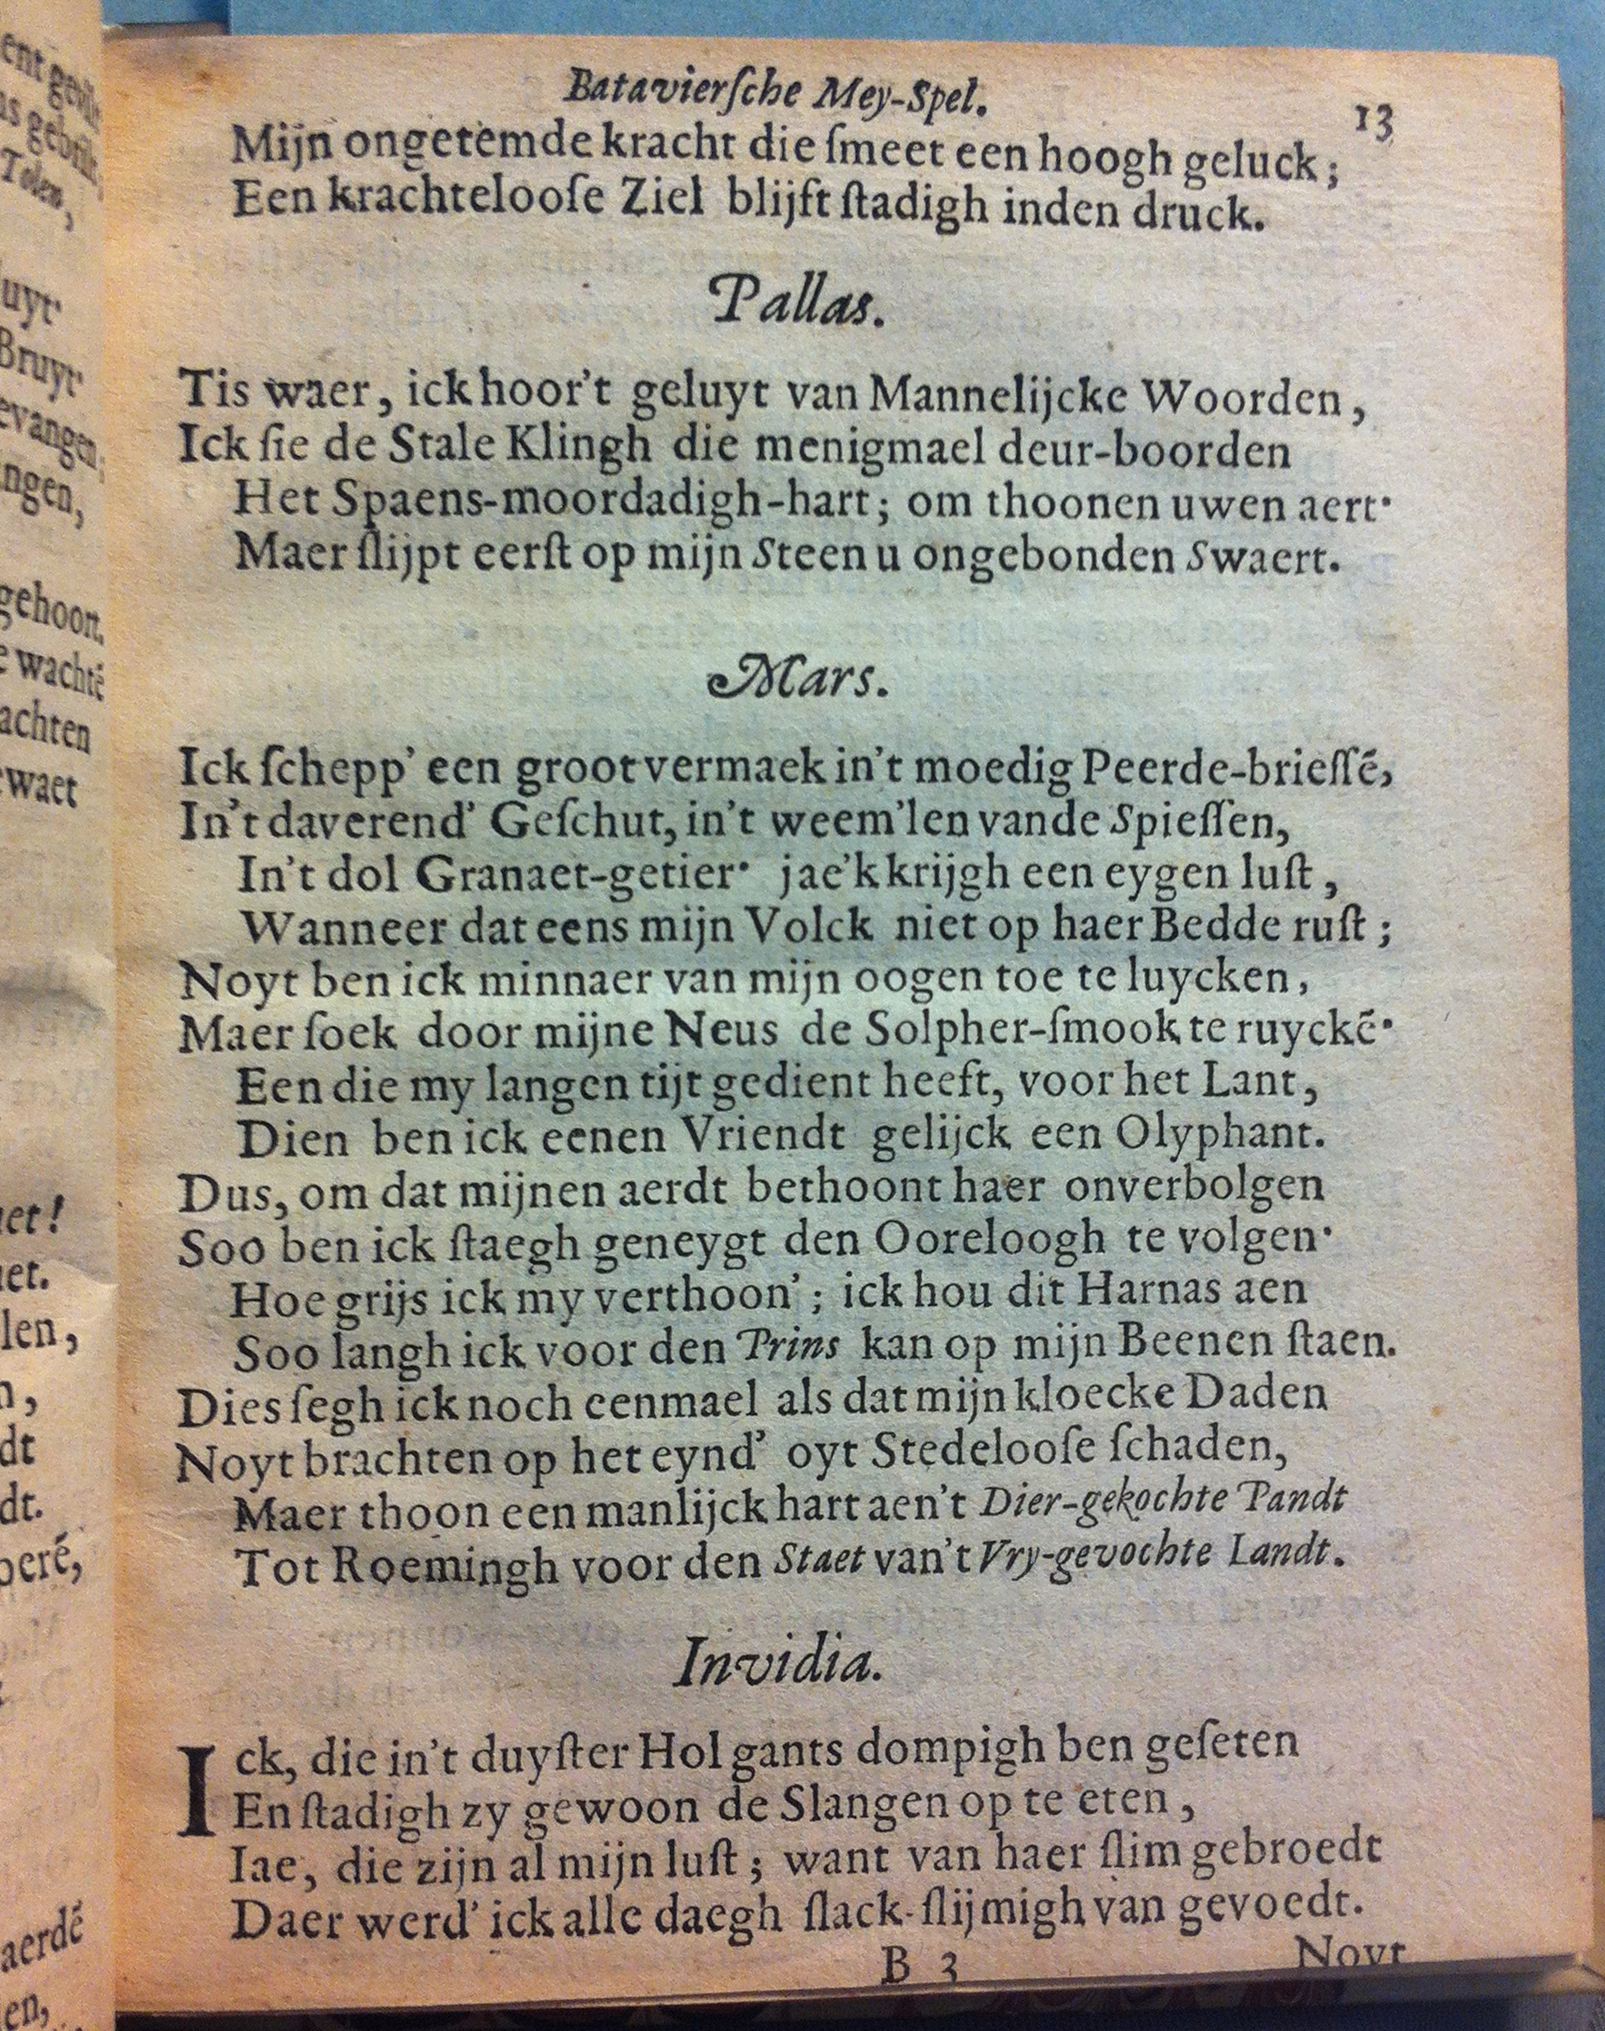 Batavierſche Mey-Spel.
13
Mijn ongetemde kracht die ſmeet een hoogh geluck;
Een krachtelooſe Ziel blijft ſtadigh inden druck.
Pallas.
Tis waer, ick hoor't geluyt van Mannelijcke Woorden,
Ick ſie de Stale Klingh die menigmael deur-boorden
Het Spaens-moordadigh-hart; om thoonen uwen aert·
Maer ſlijpt eerſt op mijn Steen u ongebonden Swaert.
Mars.
Ick ſchepp' een groot vermaek in't moedig Peerde-brieſſē,
In't daverend' Geſchut, in't weem'len vande Spieſſen,
In't dol Granaet-getier· jae'k krijgh een eygen luſt,
Wanneer dat eens mijn Volck niet op haer Bedde ruſt;
Noyt ben ick minnaer van mijn oogen toe te luycken,
Maer ſoek door mijne Neus de Solpher-ſmook te ruyckē·
Een die my langen tijt gedient heeft, voor het Lant,
Dien ben ick eenen Vriendt gelijck een Olyphant.
Dus, om dat mijnen aerdt bethoont haer onverbolgen
Soo ben ick ſtaegh geneygt den Ooreloogh te volgen·
Hoe grijs ick my verthoon'; ick hou dit Harnas aen
Soo langh ick voor den Prins kan op mijn Beenen ſtaen.
Dies ſegh ick noch eenmael als dat mijn kloecke Daden
Noyt brachten op het eynd' oyt Stedelooſe ſchaden,
Maer thoon een manlijck hart aen't Dier-gekochte Pandt
Tot Roemingh voor den Staet van't Vry-gevochte Landt.
Invidia.
Ick, die in't duyſter Hol gants dompigh ben geſeten
En ſtadigh zy gewoon de Slangen op te eten,
Iae, die zijn al mijn luſt; want van haer ſlim gebroedt
Daer werd' ick alle daegh ſlack-ſlijmigh van gevoedt.
B 3
Noyt